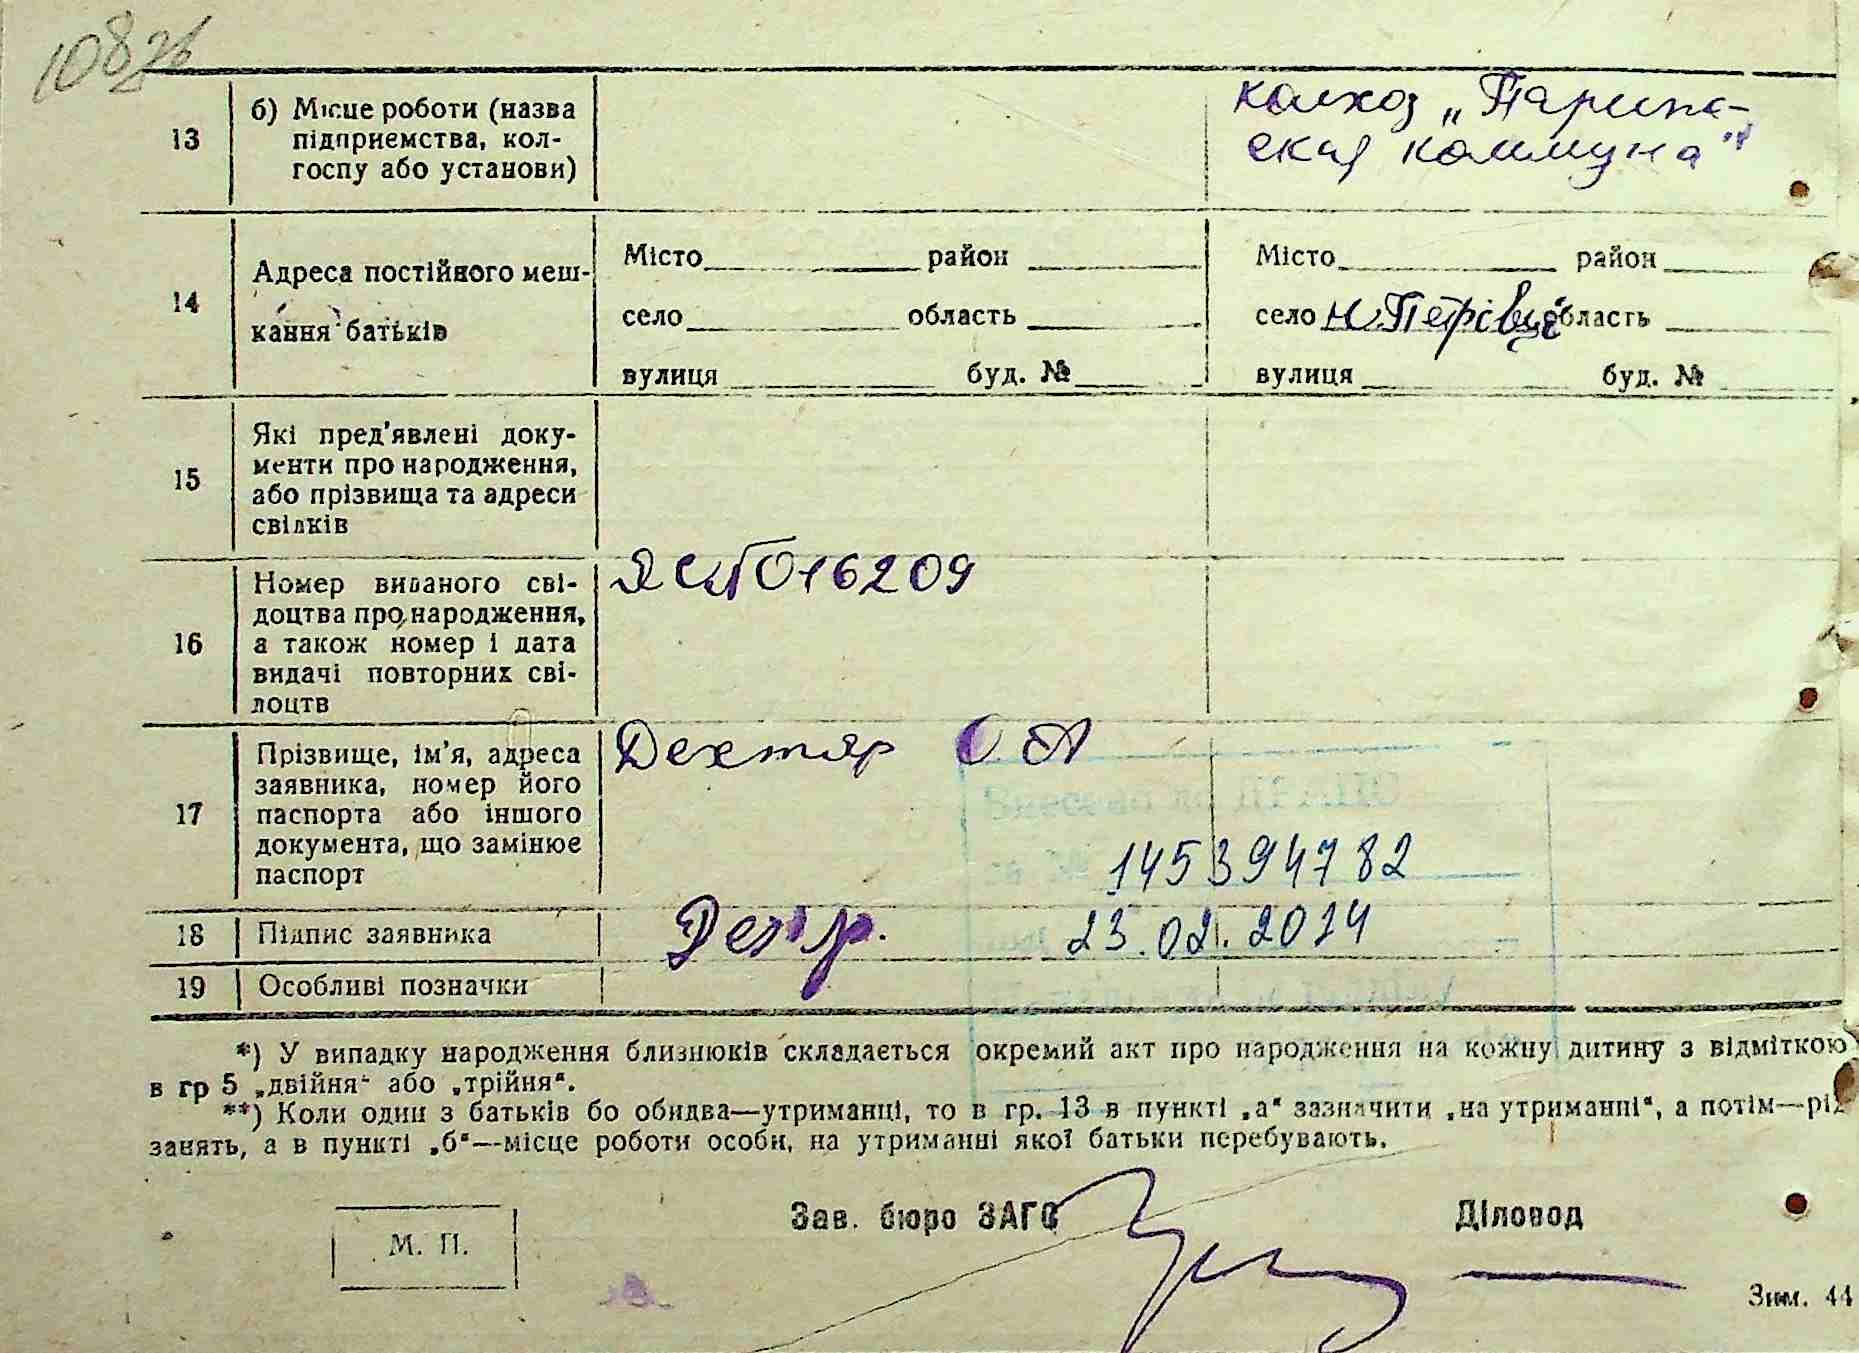 10826
13
б) Місце роботи (назва
підприємства, кол-
госпу або установи)
колхоз „Парижс-
ская коммуна"
14
Адреса постійного меш-
кання батьків
Місто район
село область
вулиця буд. №
Місто район
село Н. Петрівці область
вулиця буд. №
15
Які пред'явлені доку-
менти про народження,
або прізвища та адреси
свідків
16
Номер виданого сві-
доцтва про народження,
а також номер і дата
видачі повторних сві-
доцтв
016209
17
Прізвище, ім'я, адреса
заявника, номер його
паспорта або іншого
документа, що замінює
паспорт
Дехтяр О. А
Внесено до ДРАЦС
за № 145394782
18
Підпис заявника
23.02.2014
19
Особливі позначки
*) У випадку народження близнюків складається окремий акт про народження на кожну дитину з відміткою
в гр 5 „двійня“ або „трійня“.
**) Коли один з батьків бо обидва—утриманці, то в гр. 13 в пункті „а“ зазначити „на утриманні“, а потім—рід
занять, а в пункті „б“—місце роботи особи, на утриманні якої батьки перебувають.
М. П.
Зав. бюро ЗАГС
Діловод
Зим. 44